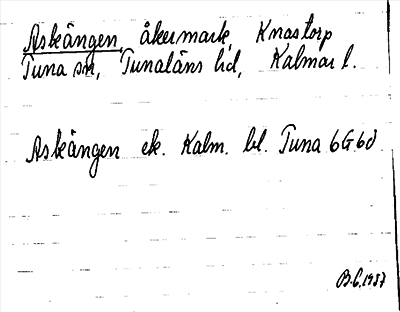 Askängen, åkermark, Knastorp
Tuna sn, Tunaläns hd, Kalmar l.
Askängen ek. Kalm. bl. Tuna 6G6d
B.C. 1937